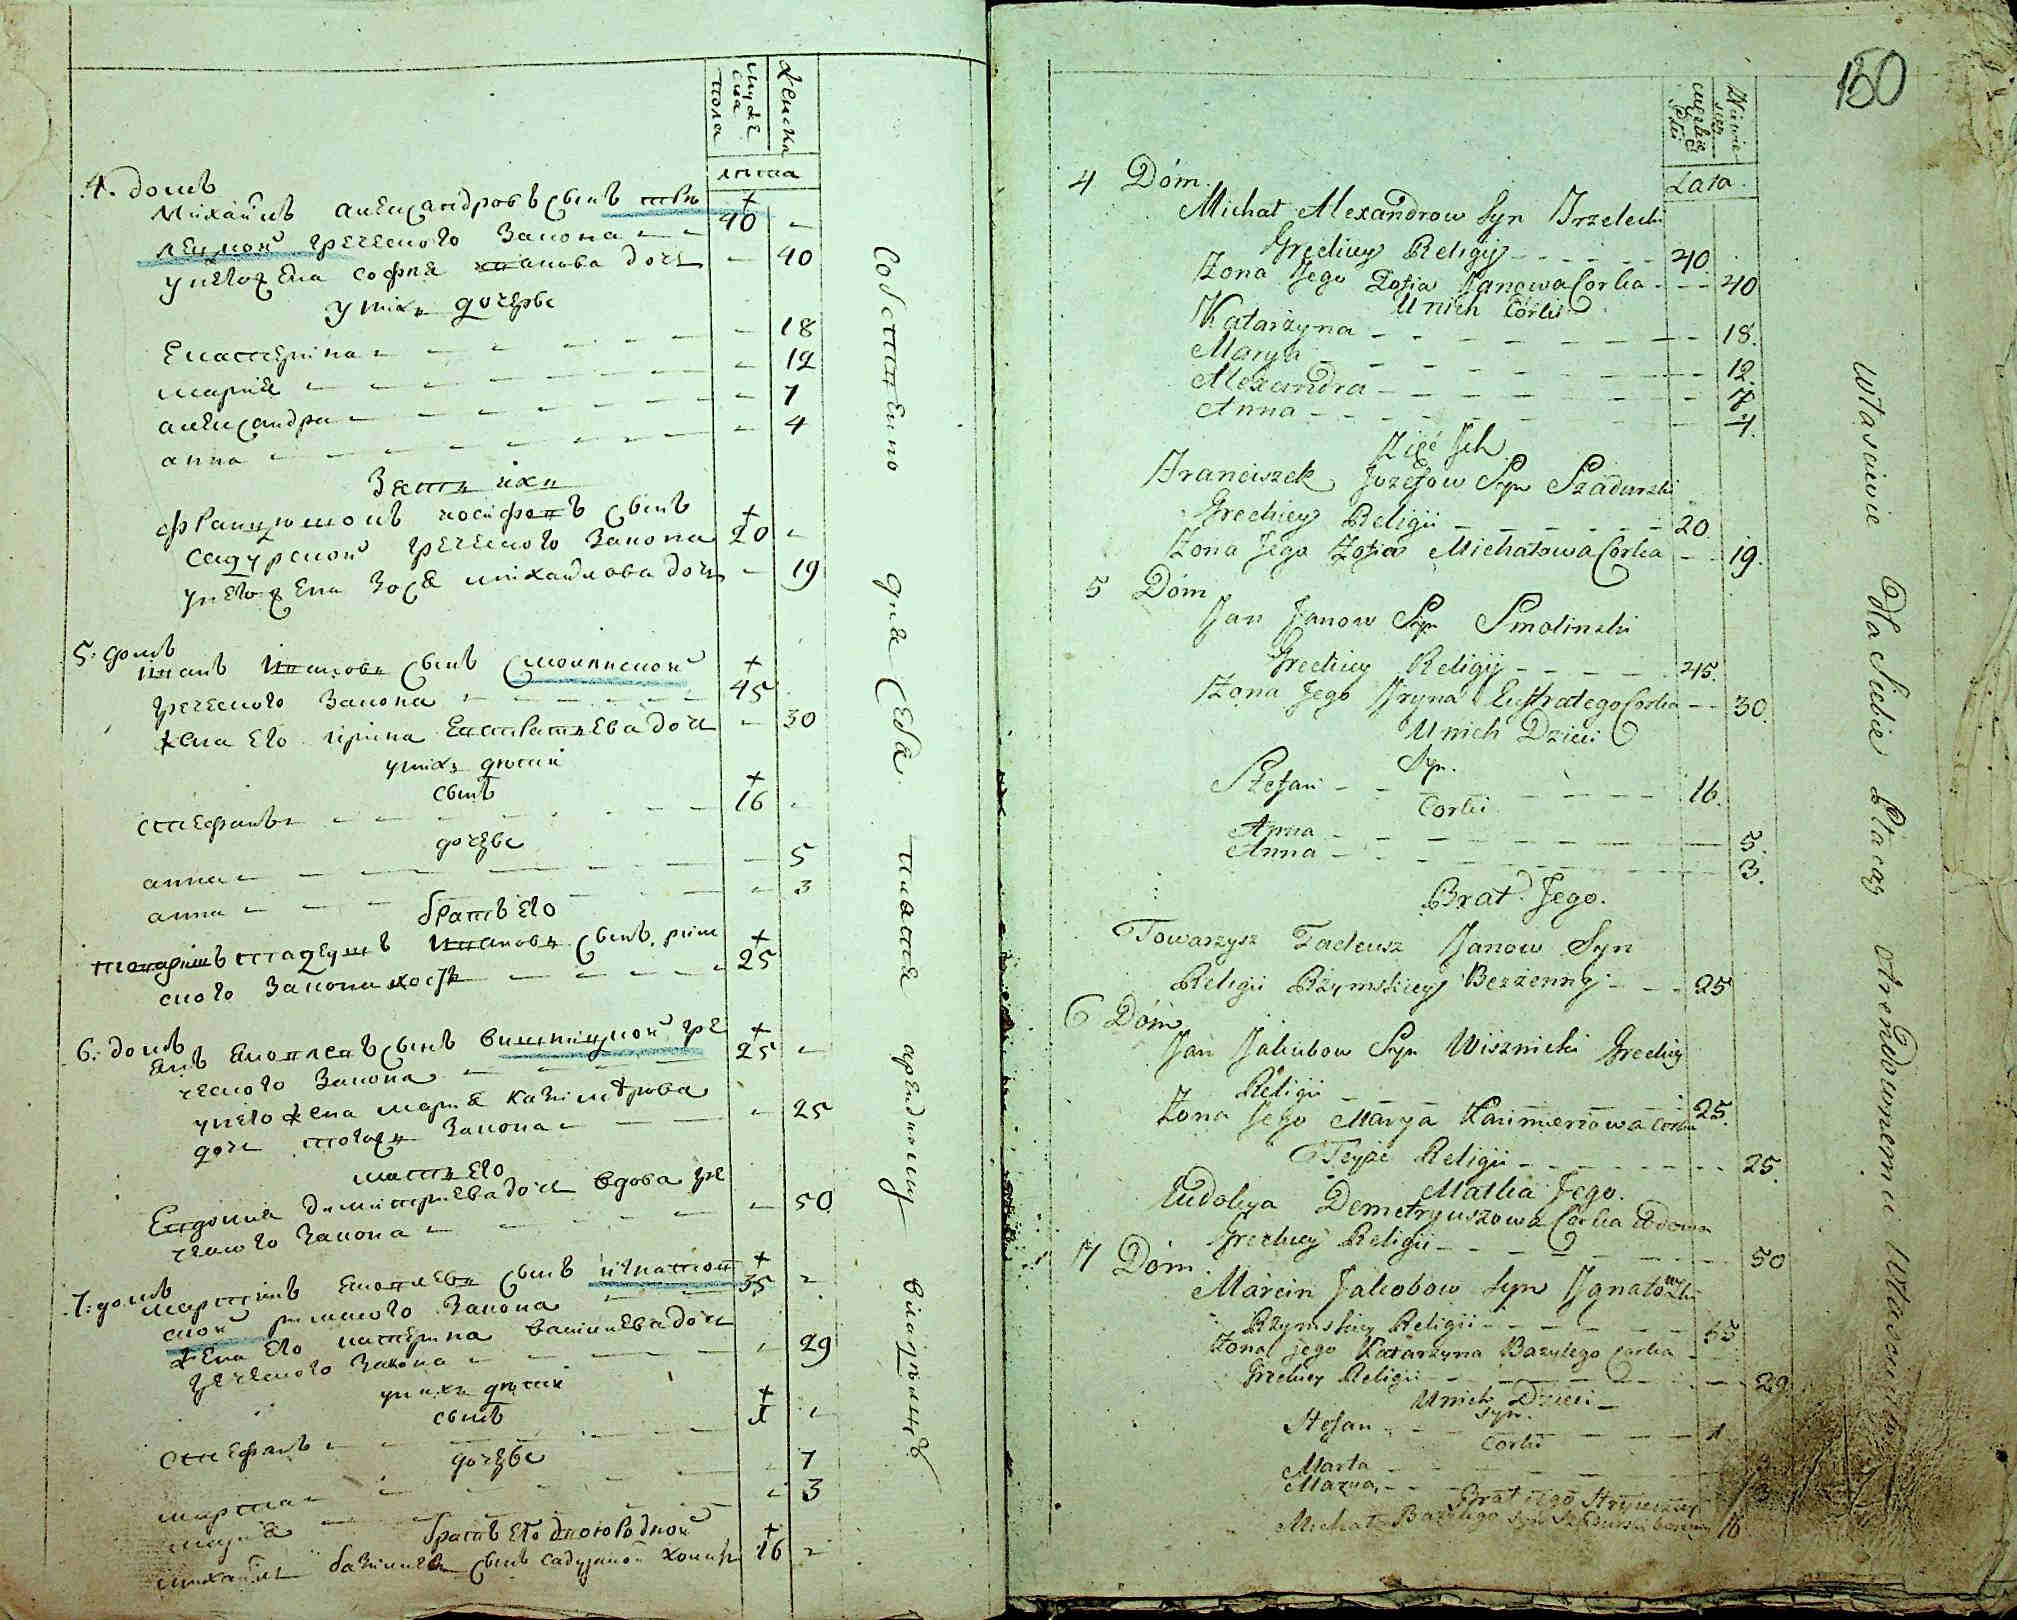 мужеска пола
женска
лета
4. домъ
Михайлъ александровъ сынъ
греческого Закона 40
унего жена софия иванова дочь 40
у нихъ дочерье
Екатерина 18
мария 12
александра 7
анна 4
Зять ихъ
осифовъ сынъ
садурской греческого Закона 20
унего жена Зося михайлова дочь 19
5: домъ
иванъ ивановъ сынъ смолинской
греческого Закона 45
жена Его ирина Евстратиева дочь 30
унихъ дети
сынъ
стефанъ 16
дочерье
анна 5
анна 3
братъ Его
товаришъ тадеушъ ивановъ сынъ рим
ского Закона холостъ 25
6: домъ
янъ яковлевъ сынъ вишницкой гре
ческого Закона 25
унего жена мария казимирова
дочь тогожъ Закона 25
мать Его
Евдокия димитриева дочь вдова гре
ческого Закона 50
7: домъ
мартинъ яковлевъ сынъ игнатов
ской римского Закона 35
жена Его катерина василиева дочь
греческого Закона 29
унихъ дети
сынъ
стефанъ 1
дочерье
марта 7
мария 3
братъ Его двоюродной
михайлъ базилиевъ сынъ садурской 16
Собственно для себя платя арендному владельцу
150
Męzkiey Płci
Niewie
Lata
4 Dóm.
Michał Alexandrow Syn Strzelecki
Greckiey Religij 40
Żona Jego Zofia Janowa Corka 40
U nich Córki
Katarzyna 18.
Marya 12.
Alexandra 7.
Anna 4.
Zięć Jch
Franciszek Jozefow Syn Szadurski
Greckiey Religii 20.
Żona Jego Zofia Michałowa Corka 19.
5 Dóm
Jan Janow Syn Smolinski
Greckiey Religij 45.
Żona Jego Jryna Eustratego Corka 30.
U nich Dzieci
Syn.
Stefan 16.
Corki
Anna 5.
Anna 3.
Brat Jego.
Towarzysz Tadeusz Janow Syn
Religii Rzymskiey Bezżenny 25
6 Dóm
Jan Jakubow Syn Wisznicki Greckiey
Religii 25.
Żona Jego Marya Kazimierzowa Corka
Teyże Religii 25.
Matka Jego.
Eudokya Demetryuszowa Corka Wdowa
Greckiey Religii 50
7 Dóm.
Marcin Jakobow Syn Jgnatowski
Rzymskiey Religii 35
Żona jego Katarzyna Bazylego Corka
Greckiey Religii 29
U nich Dzieci
Syn.
Stefan 1
Corki
Marta
Marya 3
Brat jego Stryieczny
Michał Bazylego Syn Szadurski 16
Własciwie Dla Siebie Płacąc Arendownemu